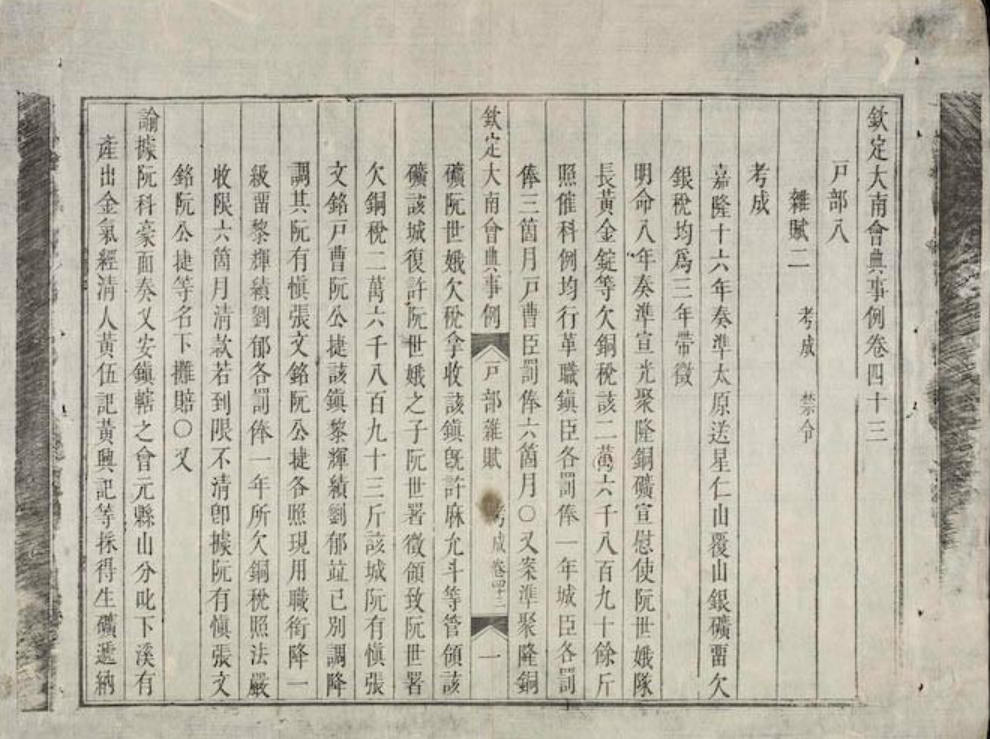 欽定大南會典事例卷四十三
戸部八
雜賦二 考成 禁令
考成
嘉隆十六年奏準太原送星仁山覆山銀礦畱欠
銀稅均爲三年帶徵
明命八年奏準宣光聚隆銅礦宣慰使阮世娥隊
長黃金錠等欠銅稅該二萬六千八百九十餘斤
照催科例均行革職鎮臣各罰俸一年城臣各罰
俸三箇月戸曹臣罰俸六箇月〇又案準聚隆銅
欽定大南會典事例 戸部雜賦 考成 卷四十三 一
礦阮世娥欠稅拿收該鎮旣許麻允斗等管領該
礦該城復許阮世娥之子阮世署徵領致阮世署
欠銅稅二萬六千八百九十三斤該城阮有慎張
文銘戸曹阮公捷該鎮黎輝績劉郁竝已別調降
調其阮有慎張文銘阮公捷各照現用職銜降一
級畱黎輝績劉郁各罰俸一年所欠銅稅照法嚴
收限六箇月清款若到限不清卽據阮有慎張文
銘阮公捷等名下攤賠〇又
諭據阮科豪面奏乂安鎮轄之會元縣山分叱下溪有
產出金氣經清人黃伍記黃興記等採得生礦遞納